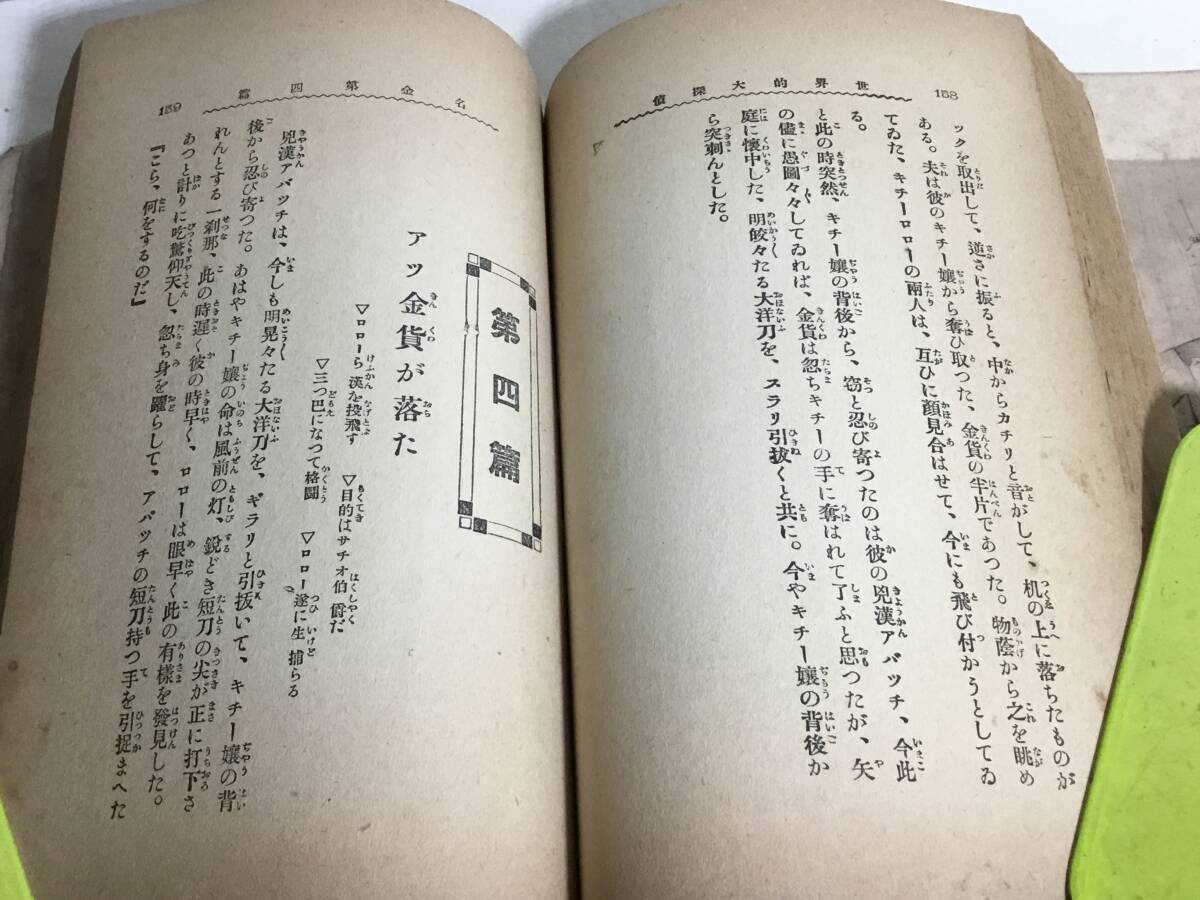 158
世界的大探偵
ックを取出して、逆さに振ると、中からカチリと音がして、机の上に落ちたものが
ある。夫は彼のキチー嬢から奪ひ取つた、金貨の半片であつた。物蔭から之を眺め
てゐた、キチーロローの兩人は、互ひに顔見合はせて、今にも飛び付かうとしてゐ
る。
と此の時突然、キチー嬢の背後から、窃と忍び寄つたのは彼の兇漢アバッチ、今此
の儘に愚圖々々してゐれば、金貨は忽ちキチーの手に奪はれて了ふと思つたが、矢
庭に懷中した、明皎々たる大洋刀を、スラリ引抜くと共に。今やキチー孃の背後か
ら突刺んとした。
名金第四篇
159
第四篇
アッ金貨が落た
▽ロローら漢を投飛す
▽目的はサチオ伯爵だ
▽三つ巴になつて格鬪
▽ロロー遂に生捕らる
兇漢アバッチは、今しも明晃々たる大洋刀を、ギラリと引拔いて、キチー孃の背
後から忍び寄つた。あはやキチー孃の命は風前の灯、鋭どき短刀の尖が正に打下さ
れんとする一刹那、此の時遲く彼の時早く、ロローは眼早く此の有樣を發見した。
あつと計りに吃驚仰天し、忽ち身を躍らして、アバッチの短刀持つ手を引捉まへた
『こら、何をするのだ』